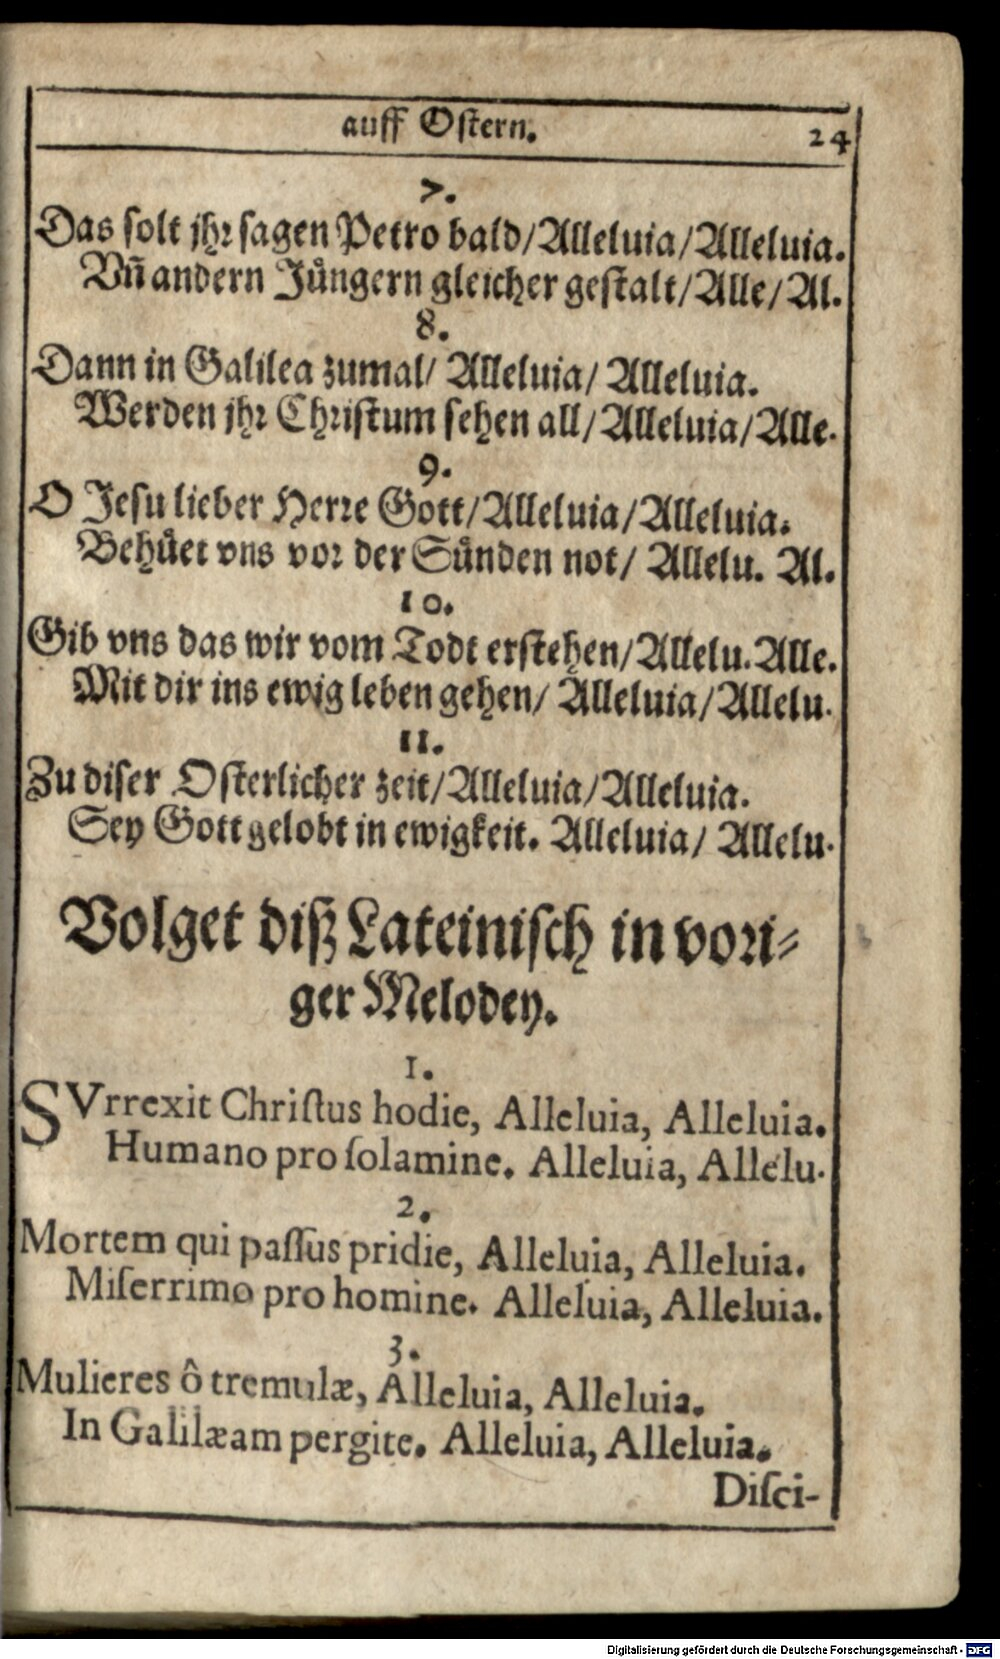 auff Oſtern. 24
7.
Das ſolt jhr ſagen Petro bald/Alleluia/Alleluia.
Vn̄ andern Jüngern gleicher geſtalt/Alle/Al.
8.
Dann in Galilea zumal/ Alleluia/ Alleluia.
Werden jhr Chriſtum ſehen all/Alleluia/Alle.
9.
O Jeſu lieber Herre Gott/Alleluia/Alleluia.
Behüet vns vor der Sünden not/ Allelu. Al.
10.
Gib vns das wir vom Todt erſtehen/Allelu. Alle.
Mit dir ins ewig leben gehen/ Alleluia/Allelu.
11.
Zu diſer Oſterlicher zeit/Alleluia/Alleluia.
Sey Gott gelobt in ewigkeit. Alleluia/ Allelu.
Volget diß Lateiniſch in vori-
ger Melodey.
1.
SVrrexit Chriſtus hodie, Alleluia, Alleluia.
Humano pro ſolamine. Alleluia, Allelu.
2.
Mortem qui paſſus pridie, Alleluia, Alleluia.
Miſerrimo pro homine. Alleluia, Alleluia.
3.
Mulieres ô tremulæ, Alleluia, Alleluia.
In Galilæam pergite. Alleluia, Alleluia.
Diſci-
Digitalisierung gefördert durch die Deutsche Forschungsgemeinschaft - DFG